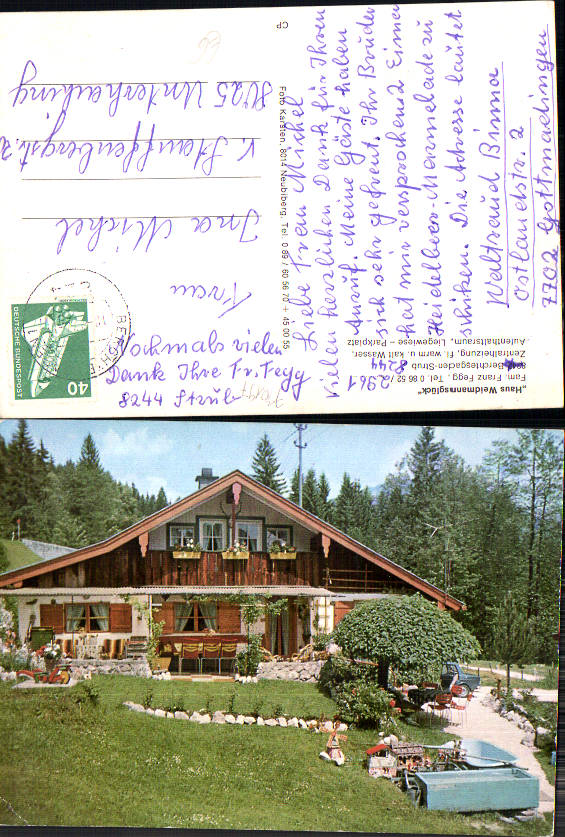 "Haus Weidmannsglück"
Fam. Franz Fegg, Tel. 0 86 52 / 2961
8244 Berchtesgaden-Strub
Zentralheizung, Fl. warm u. kalt Wasser,
Aufenthaltsraum, Liegewiese Parkplatz
Foto Karsten, 8014 Neubiberg, Tel. 0 89 / 60 56 70 + 45 00 55
CP
Liebe Frau Michel
Vielen herzlichen Dank für Ihren
Anruf. Meine Gäste haben
sich sehr gefreut. Ihr Bruder
hat mir versprochen 2 Eimer
Heidelbeer-Marmelade zu
schiken. Die Adresse lautet
Waltraud Binna
Ostlandstr. 2
7702 Gottmadingen
Nochmals vielen
Dank Ihre Fr. Fegg
8244 Strub
DEUTSCHE BUNDESPOST
40
Frau
Ina Michel
V. Stauffenbergstr. 2
8025 Unterhaching